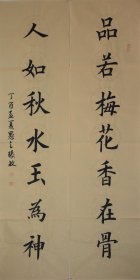 品若梅花香在骨
人如秋水玉為神
丁酉孟夏